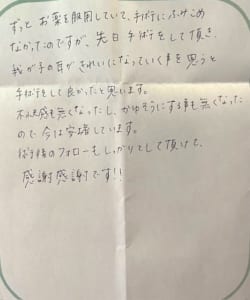 ずっとお薬を服用していて、手術にふみこめ
なかったのですが、先日手術をして頂き、
我が子の耳がきれいになっていく事を思うと
手術をして良かったと思います。
不快感も無くなったし、かゆそうにする事も無くなった
ので今は安堵しています。
術後のフォローもしっかりとして頂けて、
感謝感謝です!!